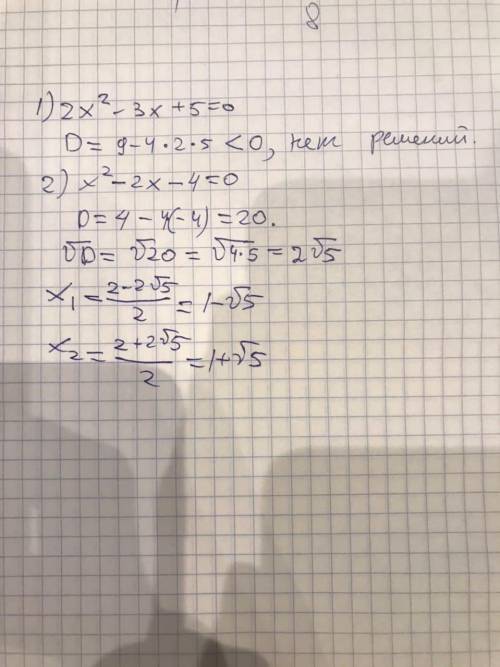 8
1) 2x² - 3x + 5 = 0
D = 9 - 4 · 2 · 5 < 0, нет решений.
2) x² - 2x - 4 = 0
D = 4 - 4(-4) = 20.
√D = √20 = √4·5 = 2√5
x₁ = (2 - 2√5)/2 = 1 - √5
x₂ = (2 + 2√5)/2 = 1 + √5